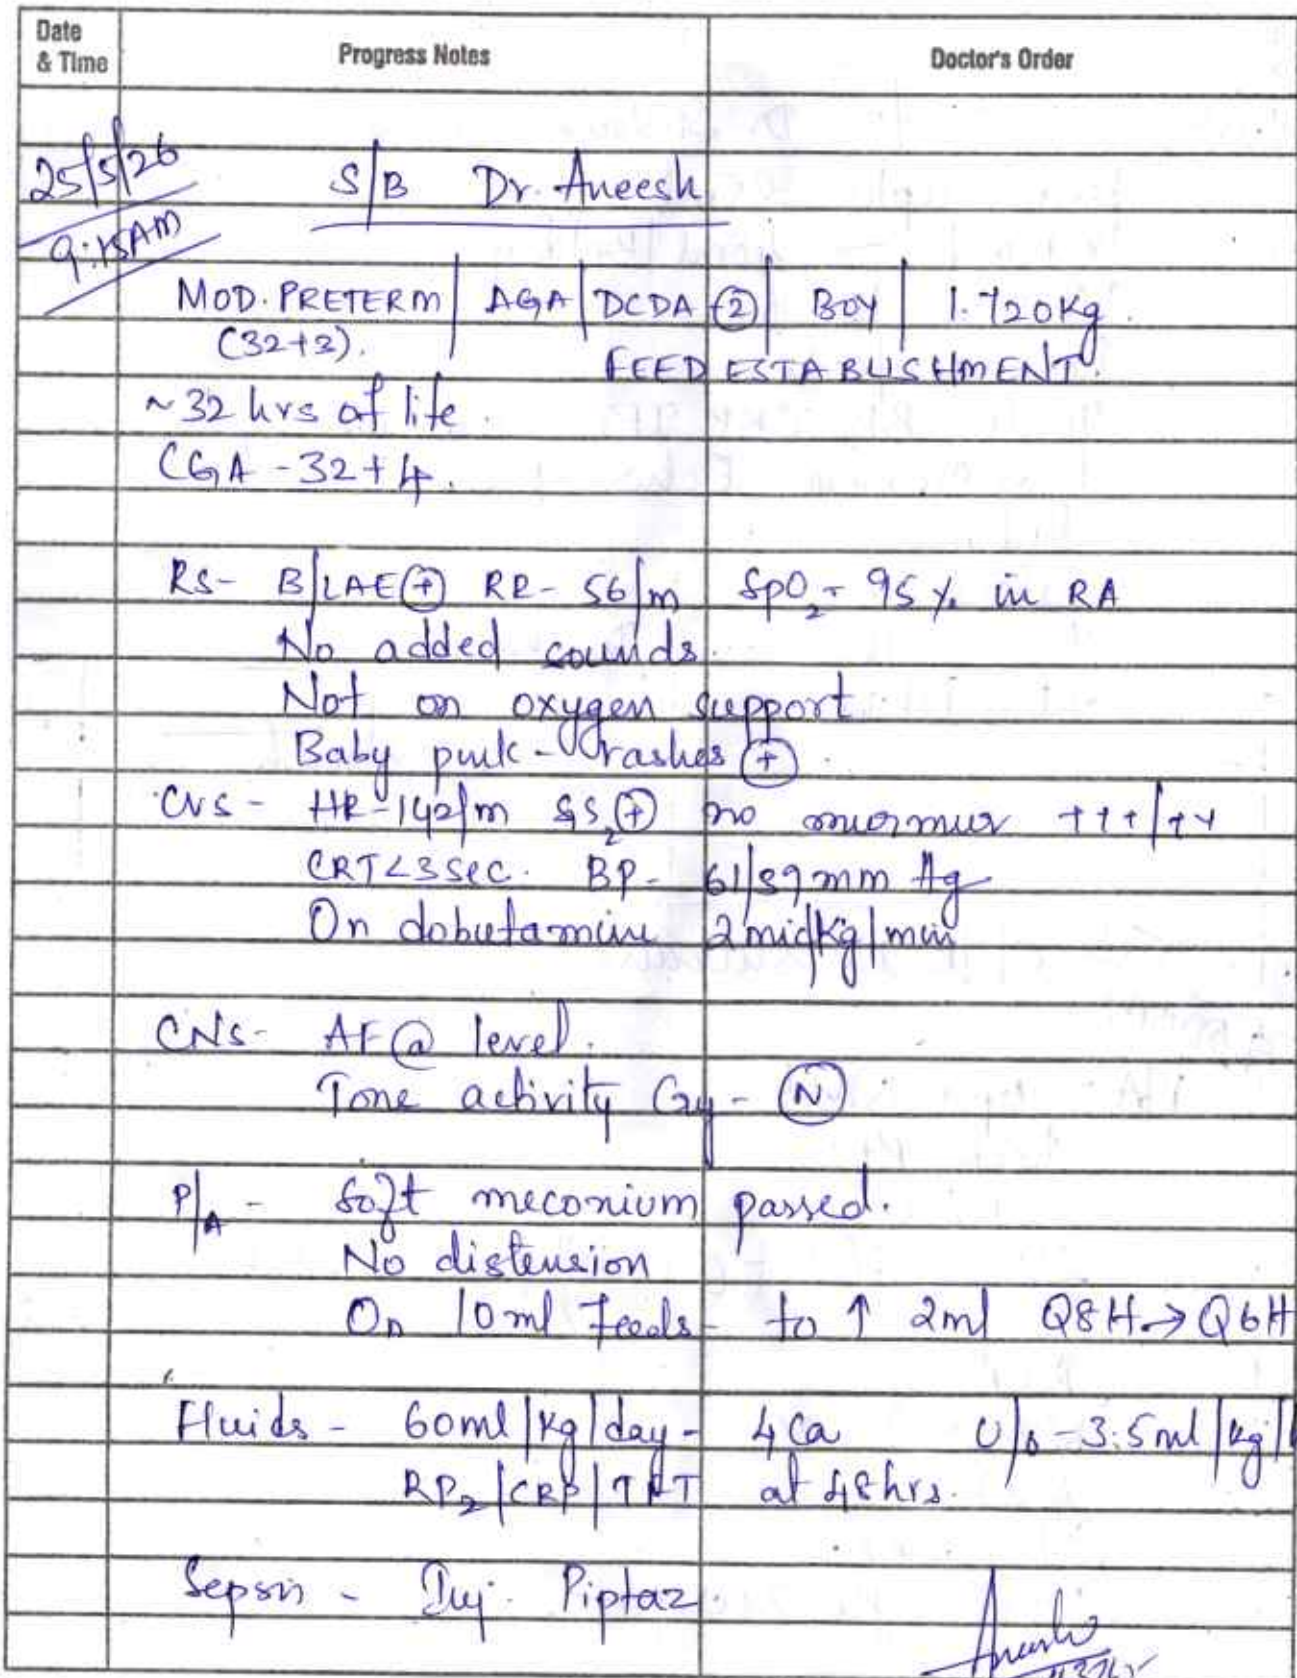 Date & Time Progress Notes Doctor's Order
25/5/26 S/B Dr. Aneesh
9:15AM
MOD. PRETERM | AGA | DCDA ② | BOY | 1.720Kg.
(32+3). FEED ESTABLISHMENT.
~32 hrs of life.
CGA - 32+4.
RS- B/LAE⊕ RR- 56/m SpO₂- 95% in RA
No added sounds.
Not on oxygen support
Baby pink - rashes ⊕.
CVS- HR-142/m S₁S₂⊕ no murmur +++/++
CRT<3sec. BP- 61/39mm Hg
On dobutamine 2mic/kg/min
CNS- AF@ level.
Tone activity Cry- Ⓝ
P/A - Soft meconium passed.
No distension
On 10ml feeds- to ↑ 2ml Q8H→Q6H
Fluids - 60ml/kg/day- 4Ca U/o-3.5ml/kg/
RP₂/CRP/ at 48hrs.
Sepsis - Inj. Piptaz.